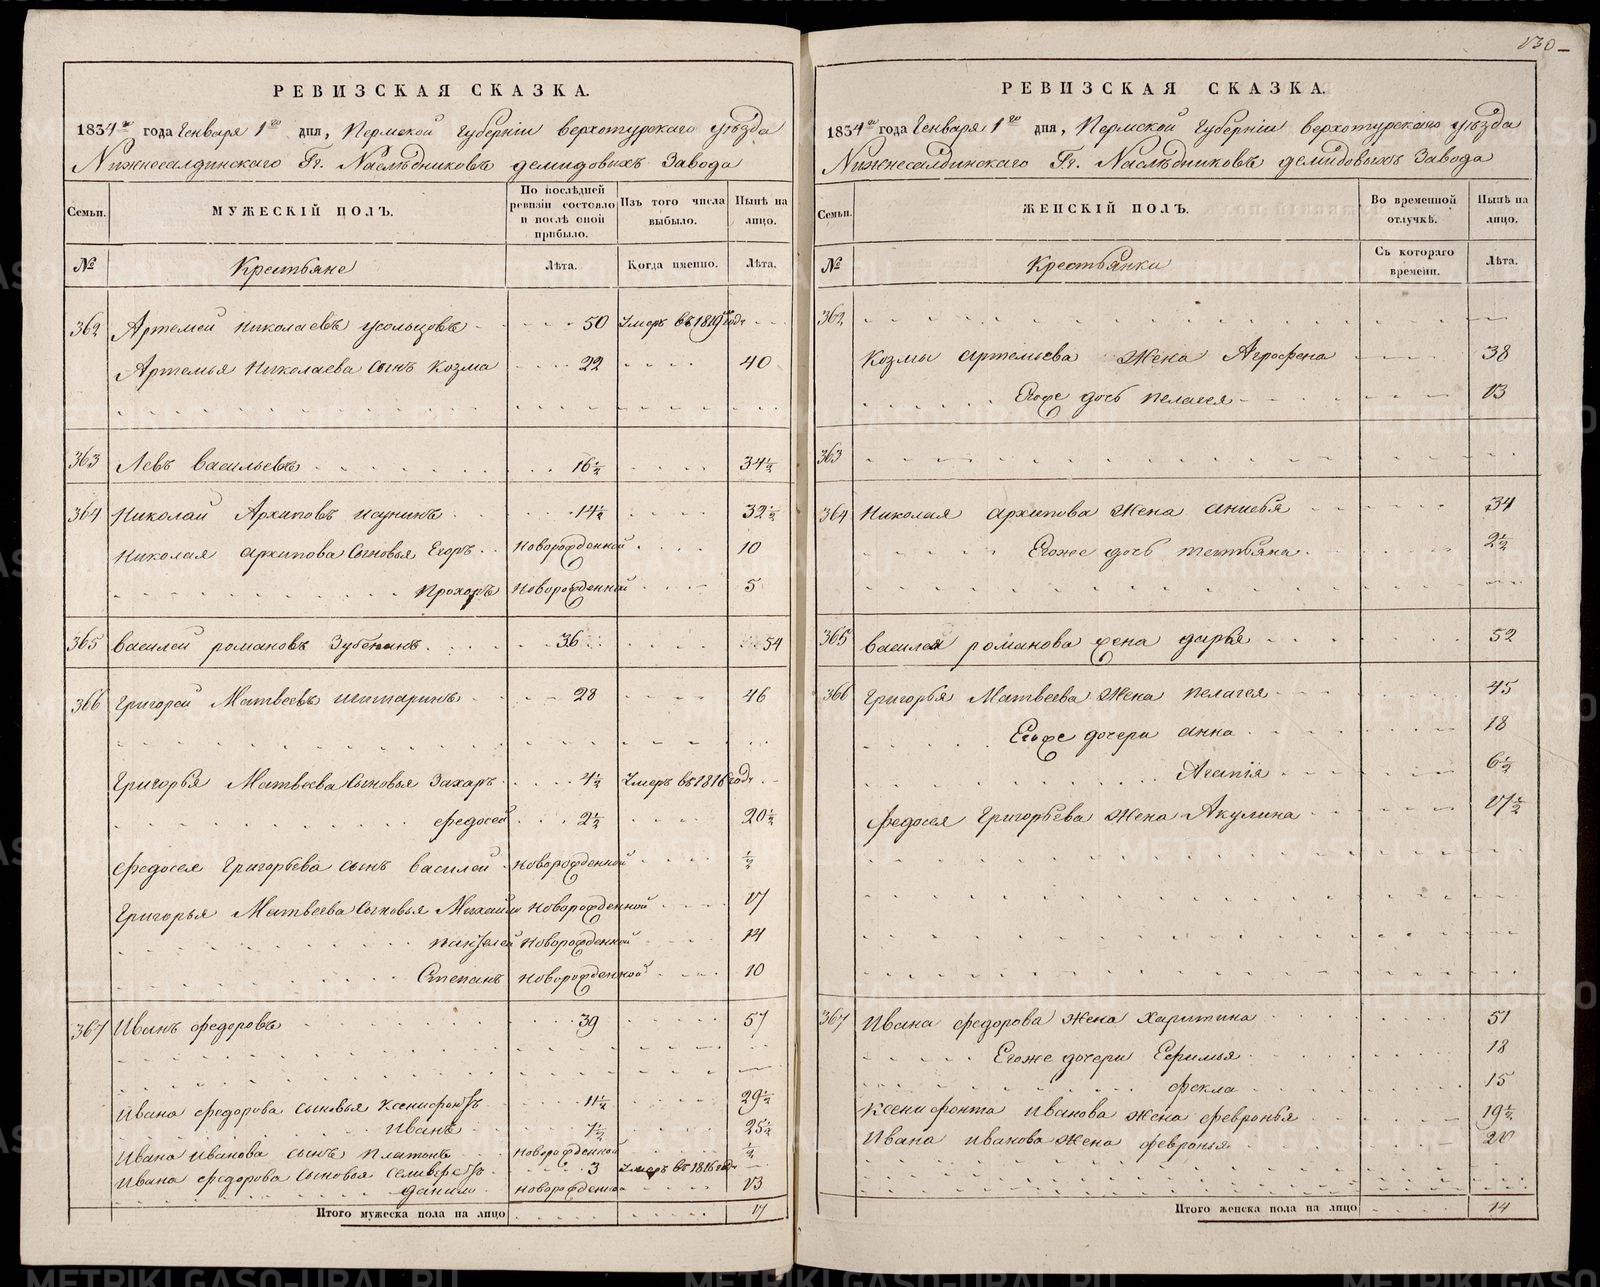 130
РЕВИЗСКАЯ СКАЗКА.
1834го года Генваря 1го дня, Пермской Губернiи верхотурскаго уѣзда
Нижнесалдинскаго Гг. Наслѣдниковъ демидовыхъ Завода
Семьи. МУЖЕСКIЙ ПОЛЪ. По послѣдней ревизiи состояло и послѣ оной прибыло. Изъ того числа выбыло. Нынѣ на лицо.
№ Крестьяне Лѣта. Когда именно. Лѣта.
362 Артемей Николаевъ усольцовъ 50 Умеръ въ 1819 годе
Артемья Николаева сынъ Козма 22 40
363 Левъ васильевъ 16½ 34½
364 Николай Архиповъ 14½ 32½
Николая архипова Сыновья Егоръ Новорожденной 10
Прохоръ Новорожденной 5
365 василей романовъ Зубенинъ 36 54
366 Григорей Матвеевъ шитаринъ 28 46
Григорья Матвеева Сыновья Захаръ 4½ Умеръ въ 1816 годе
федосей 2½ 20½
федосея Григорьева сынъ василей Новорожденной ½
Григорья Матвеева Сыновья Михайло Новорожденной 17
пантелей Новорожденной 14
Степанъ Новорожденной 10
367 Иванъ федоровъ 39 57
Ивана федорова сыновья ксенифонтъ 11½ 29½
Иванъ 7½ 25½
Ивана Иванова сынъ Платонъ Новорожденной ½
Ивана федорова сыновья селиверстъ 3 Умеръ въ 1816 годе
данило новорожденной 13
Итого мужеска пола на лицо 17
РЕВИЗСКАЯ СКАЗКА.
1834го года Генваря 1го дня, Пермской Губернiи верхотурскаго уѣзда
Нижнесалдинскаго Гг. Наслѣдниковъ демидовыхъ Завода
Семьи. ЖЕНСКIЙ ПОЛЪ. Во временной отлучкѣ. Нынѣ на лицо.
№ Крестьянки Съ котораго времени. Лѣта.
362
Козмы артемьева Жена Агрофена 38
Егоже дочь пелагея 13
363
364 Николая архипова Жена анисья 34
Егоже дочь татьяна 2½
365 василея романова жена дарья 52
366 Григорья Матвеева Жена пелагея 45
Егоже дочери анна 18
Агапiя 6½
федосея Григорьева Жена Акулина 17½
367 Ивана федорова Жена Харитина 51
Егоже дочери Ефимья 18
фекла 15
Ксенифонта Иванова Жена февронья 19½
Ивана иванова Жена февронья 20
Итого женска пола на лицо 14
METRIKI.GASO-URAL.RU